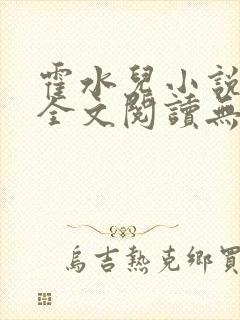 霍水兒小說
全文閱讀無
烏吉熱克鄉買